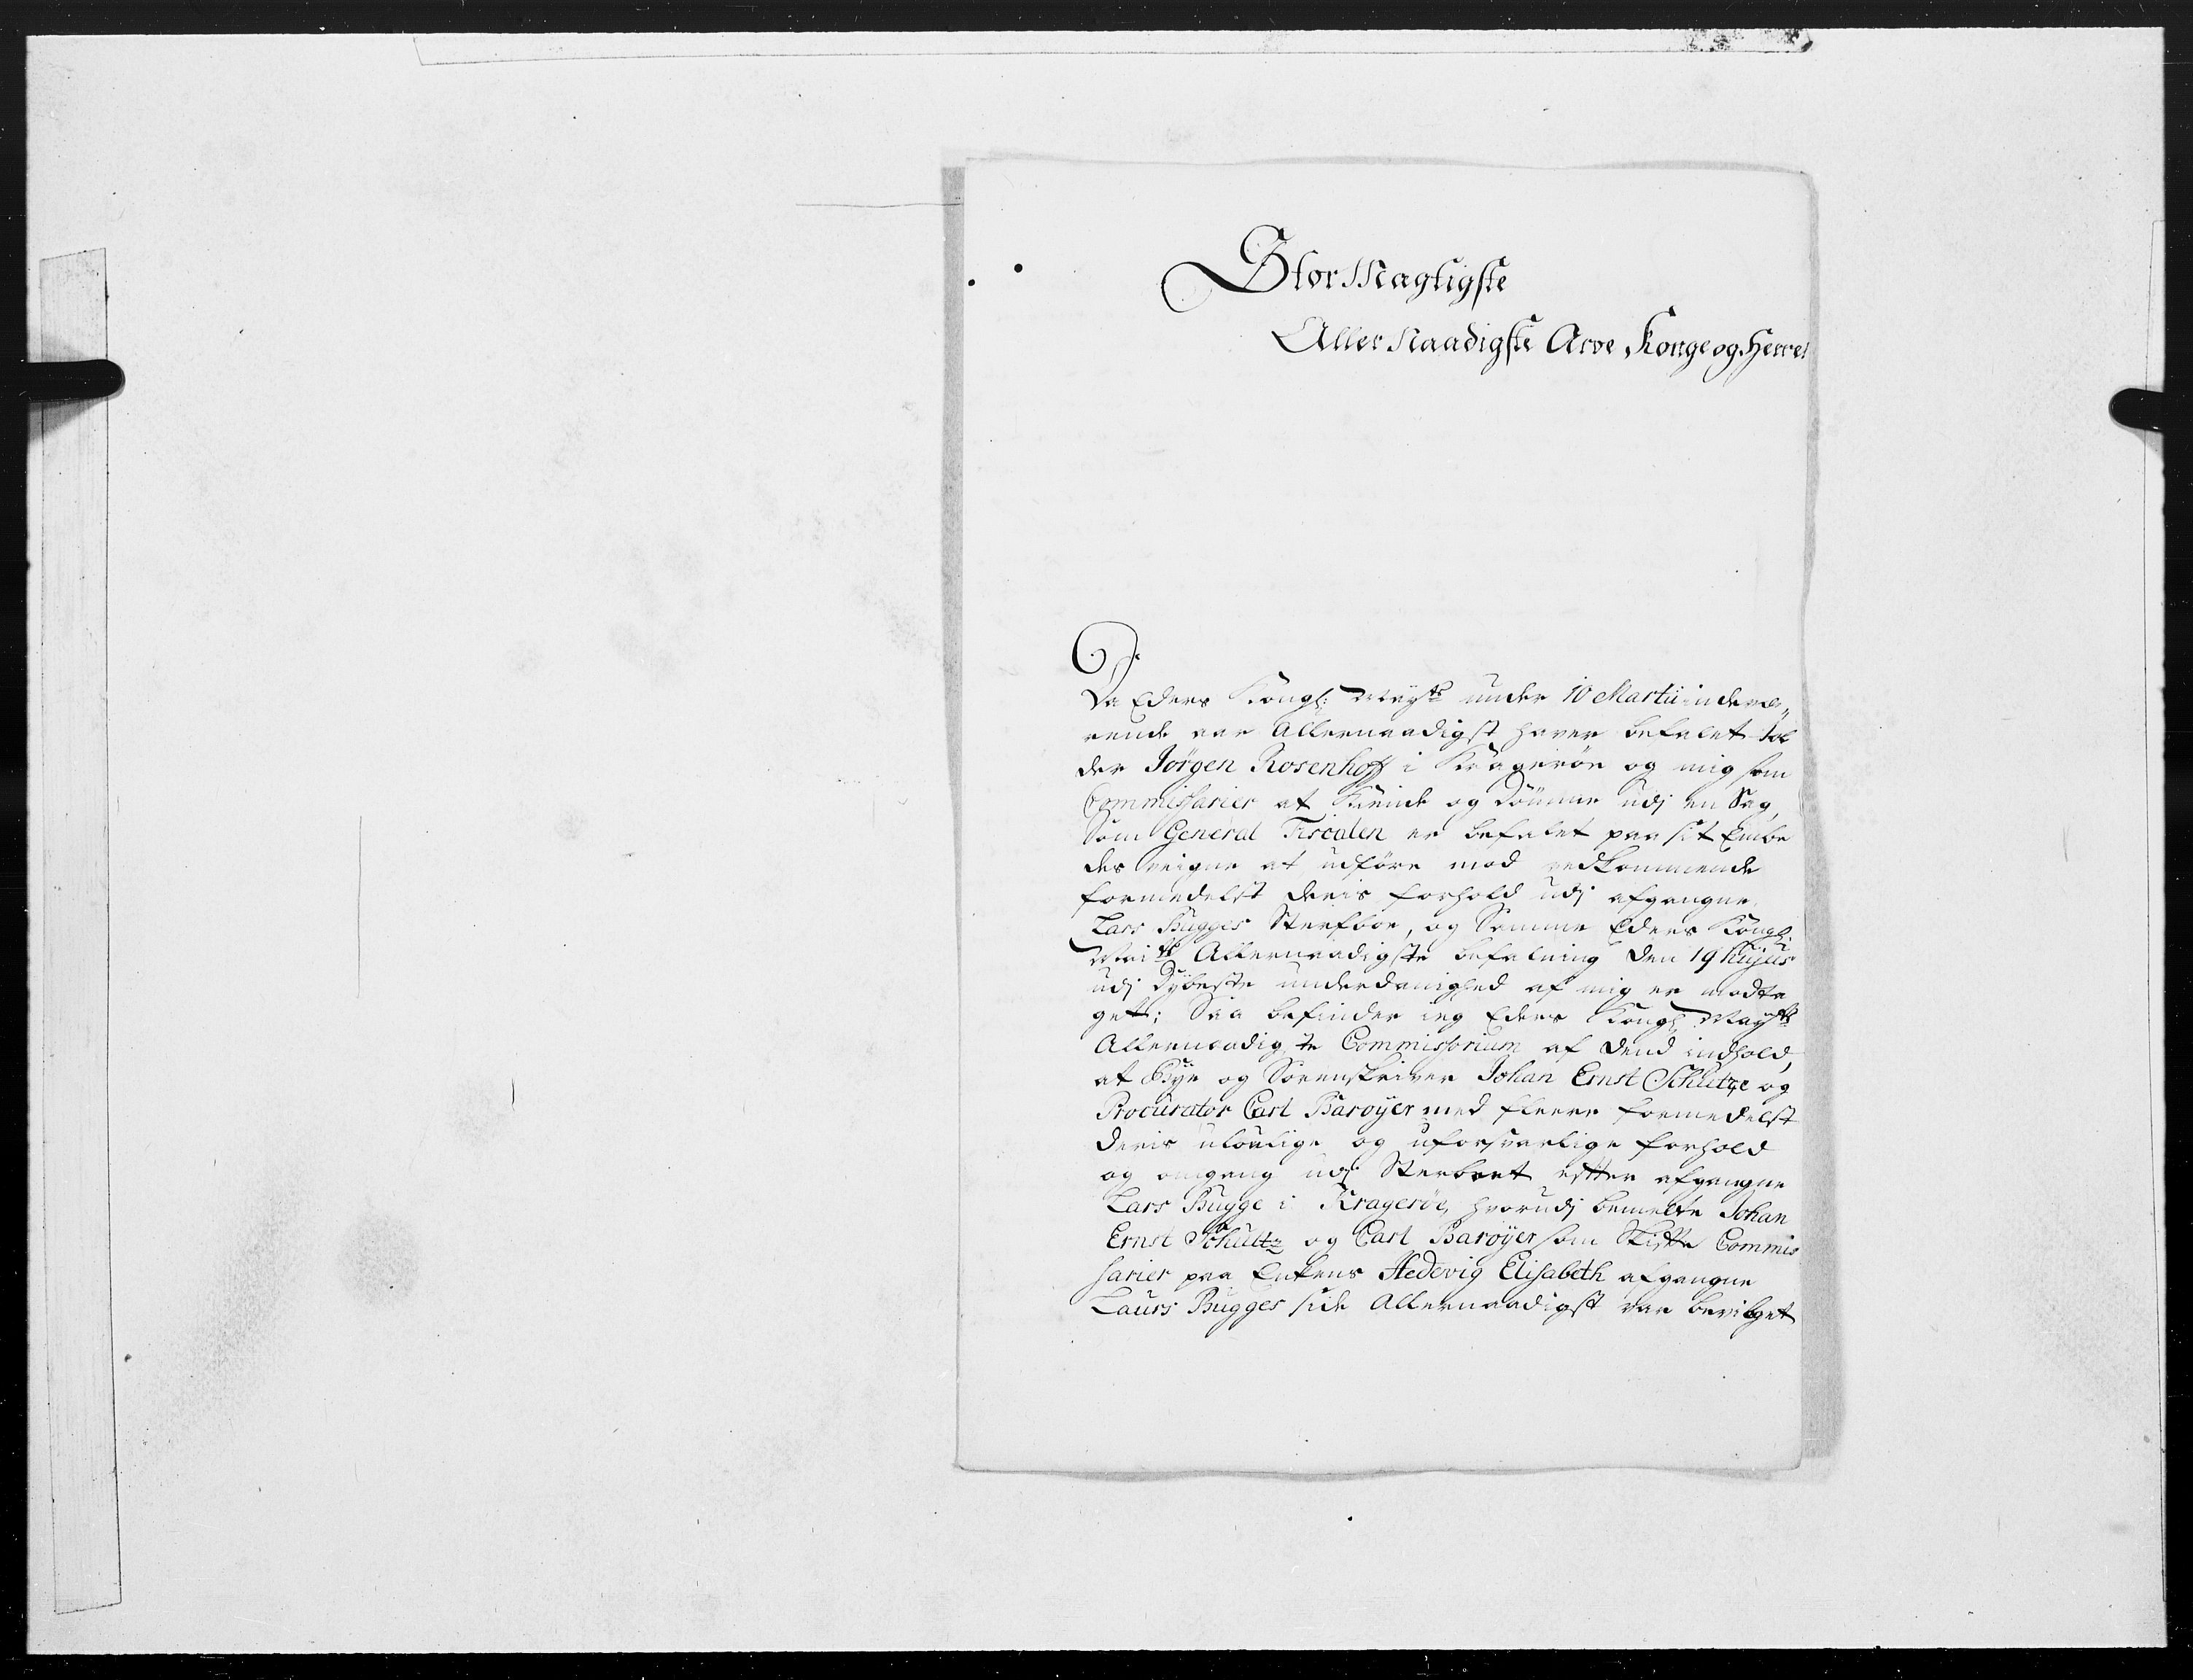 StorMagtigste
Aller Naadigste Arve Konge og Herre!
Da Eders Kongl: Mayts under 10 Martii indevæ„
rende aar Allernaadigst haver befalet Tol
der Jörgen Rosenhoff i Kragerøe og mig som
Commissarier at Kiende og Dömme udj en Sag,
Som General Fiscalen er befalet paa sit Embe
des veigne at udføre mod vedkommende
formedelst deris forhold udj afgangne
Lars Bugges Sterfboe, og Samme Eders Kongl:
Maits Allernaadigste befalning den 19 hujus
udj Dybeste underdanighed af mig er modta
get; Saa befinder ieg Eders Kongl Mayts
Allernaadigste Commissorium af dend indhold,
at Bye og Sorenskriver Johan Ernst Schultze og
Procurator Carl Barøyer med fleere formedelst
deris ulovlige og uforsvarlige forhold
og omgang udj Sterboet efter afgangne
Lars Bugge i Kragerøe, hvorudj bemelte Johan
Ernst Schultz og Carl Barøyer som Skifte Commis
sarier paa Enkens Hedevig Elisabeth afgangne
Laurs Bugges side Allernaadigst var bevilget